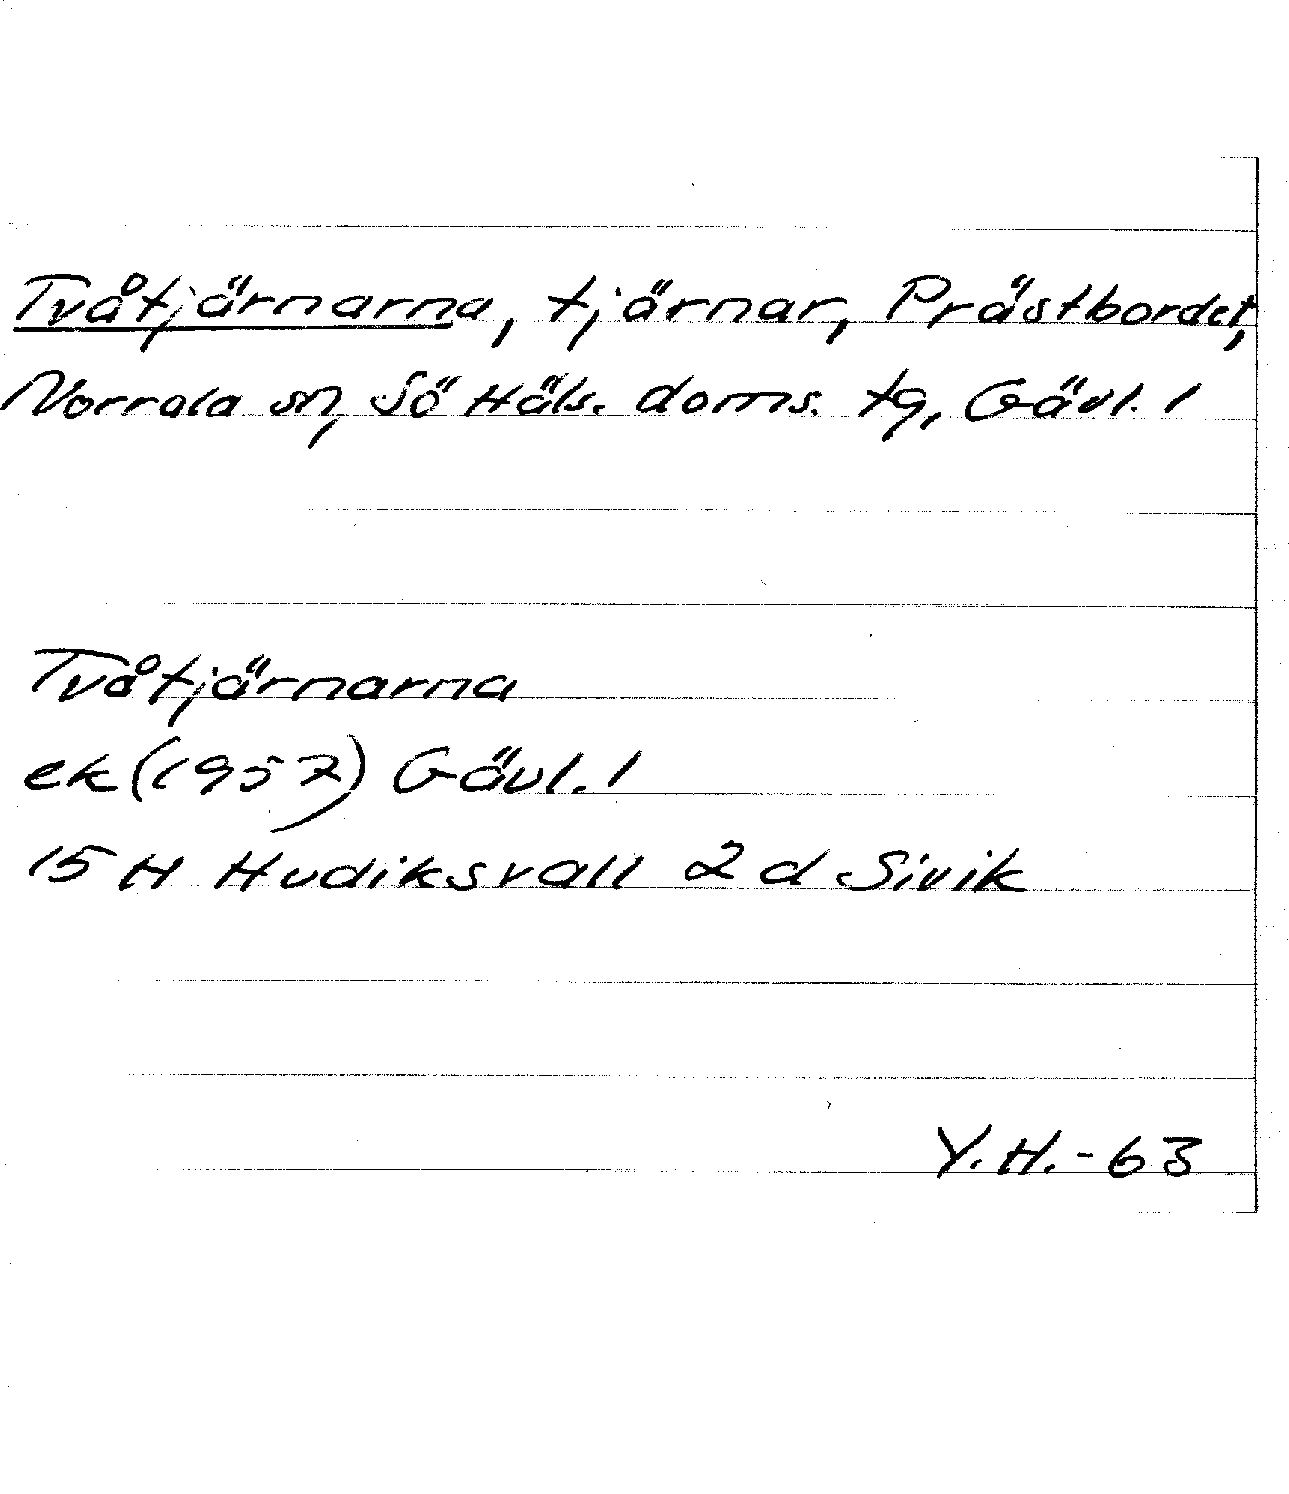 Tvåtjärnarna, tjärnar, Prästbordet,
Norrala sn, Sö Häls. doms. tg, Gävl. l
Tvåtjärnarna
ek (1957) Gävl. l
15 H Hudiksvall 2 d Sivik
Y.H.-63